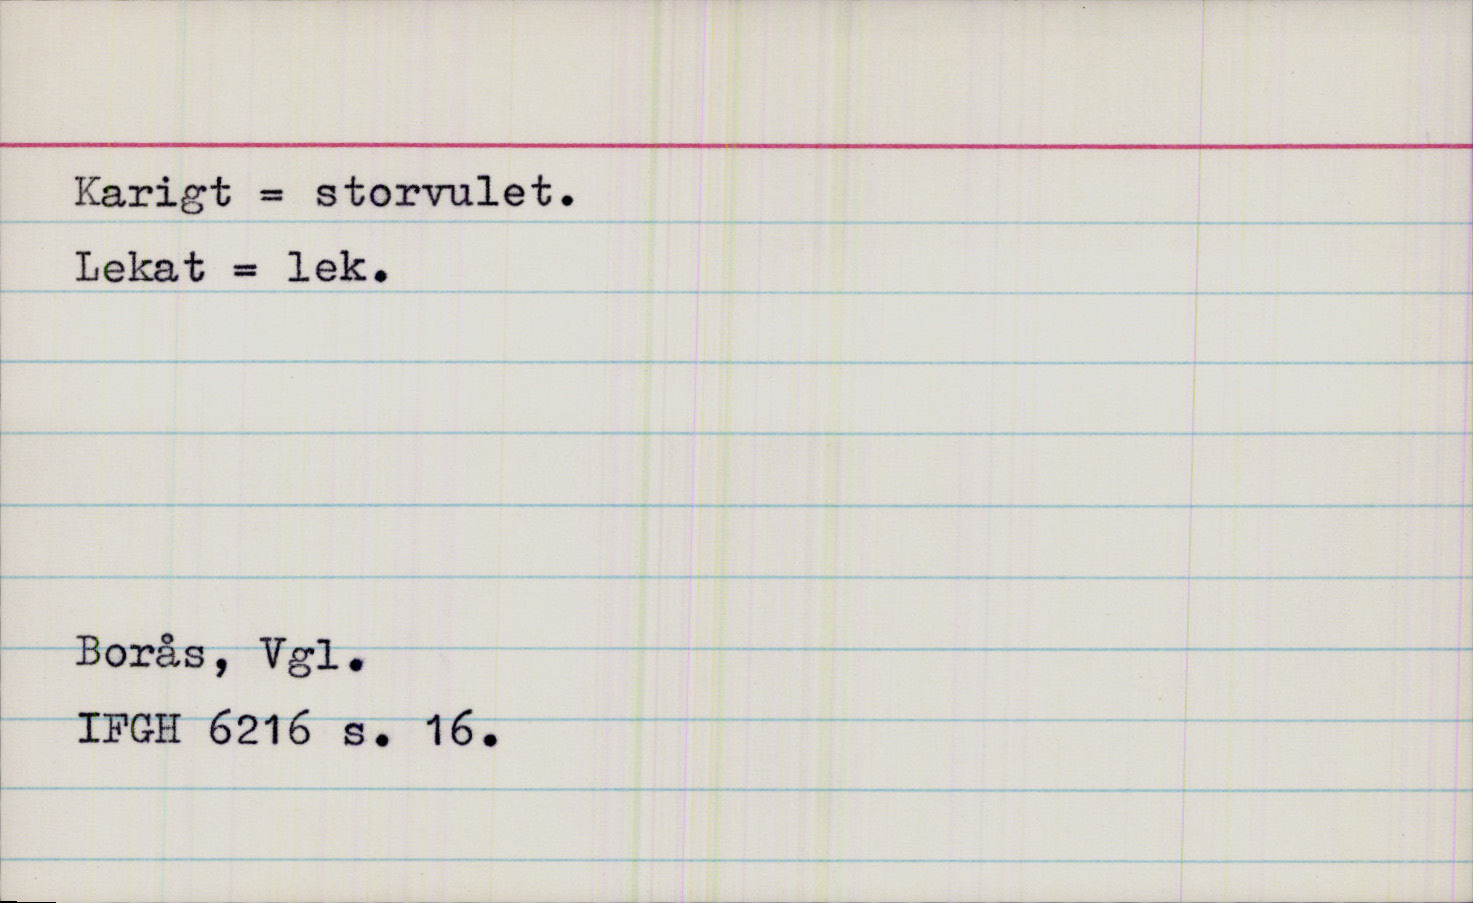 Karigt = storvulet.
Lekat = lek.
Borås, Vgl.
IFGH 6216 s. 16.